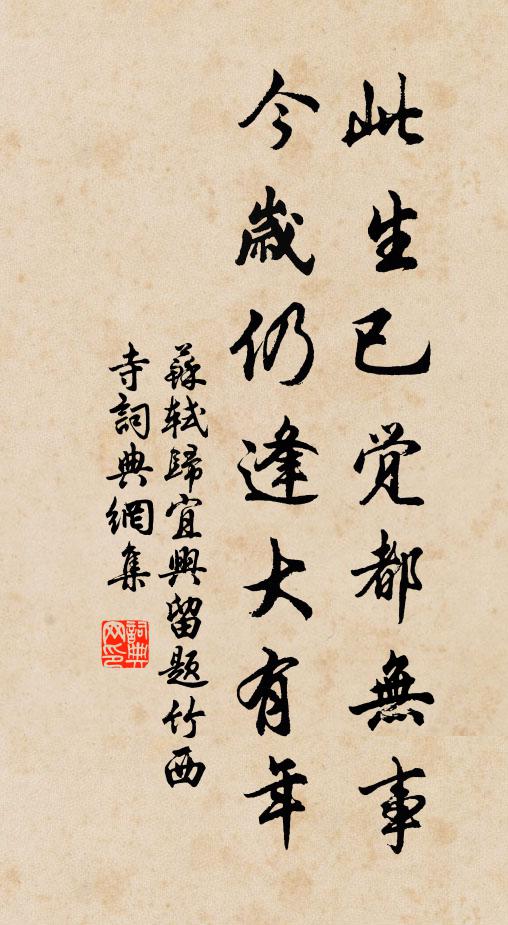 此生已觉都無事
今歲仍逢大有年
蘇軾歸宜興留題竹西
寺詞典網集
詞典
网印